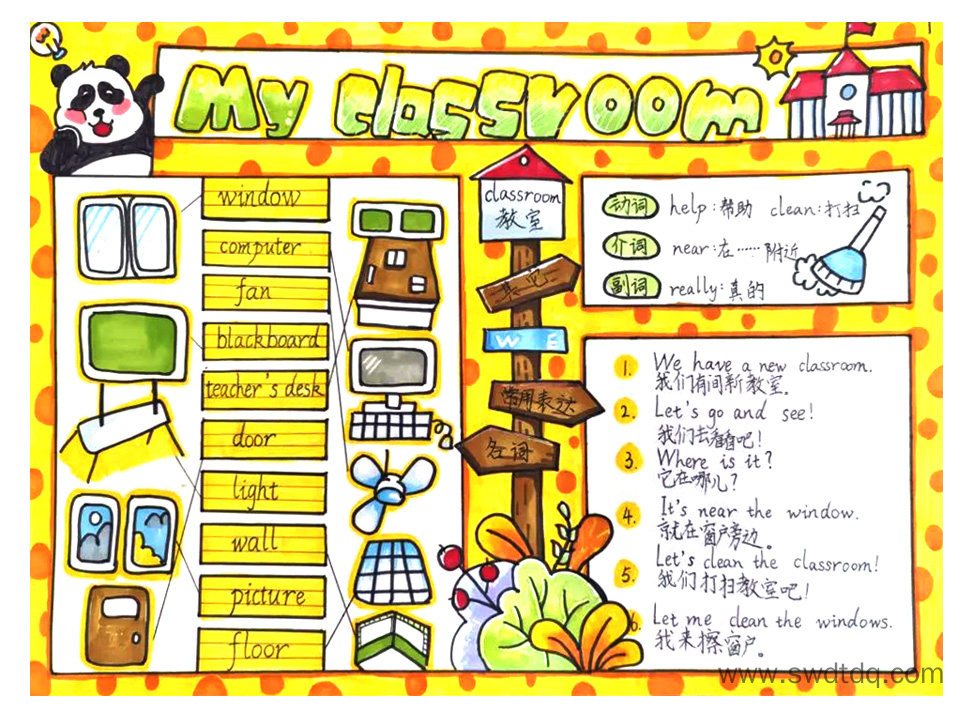 My classroom
window
computer
fan
blackboard
teacher's desk
door
light
wall
picture
floor
classroom
教室
其它
W E
常用表达
名词
动词 help:帮助 clean:打扫
介词 near:在……附近
副词 really:真的
1. We have a new classroom.
我们有间新教室。
2. Let's go and see!
我们去看看吧!
3. Where is it?
它在哪儿?
4. It's near the window.
就在窗户旁边。
5. Let's clean the classroom!
我们打扫教室吧!
6. Let me clean the windows.
我来擦窗户。
www.swdtdq.com